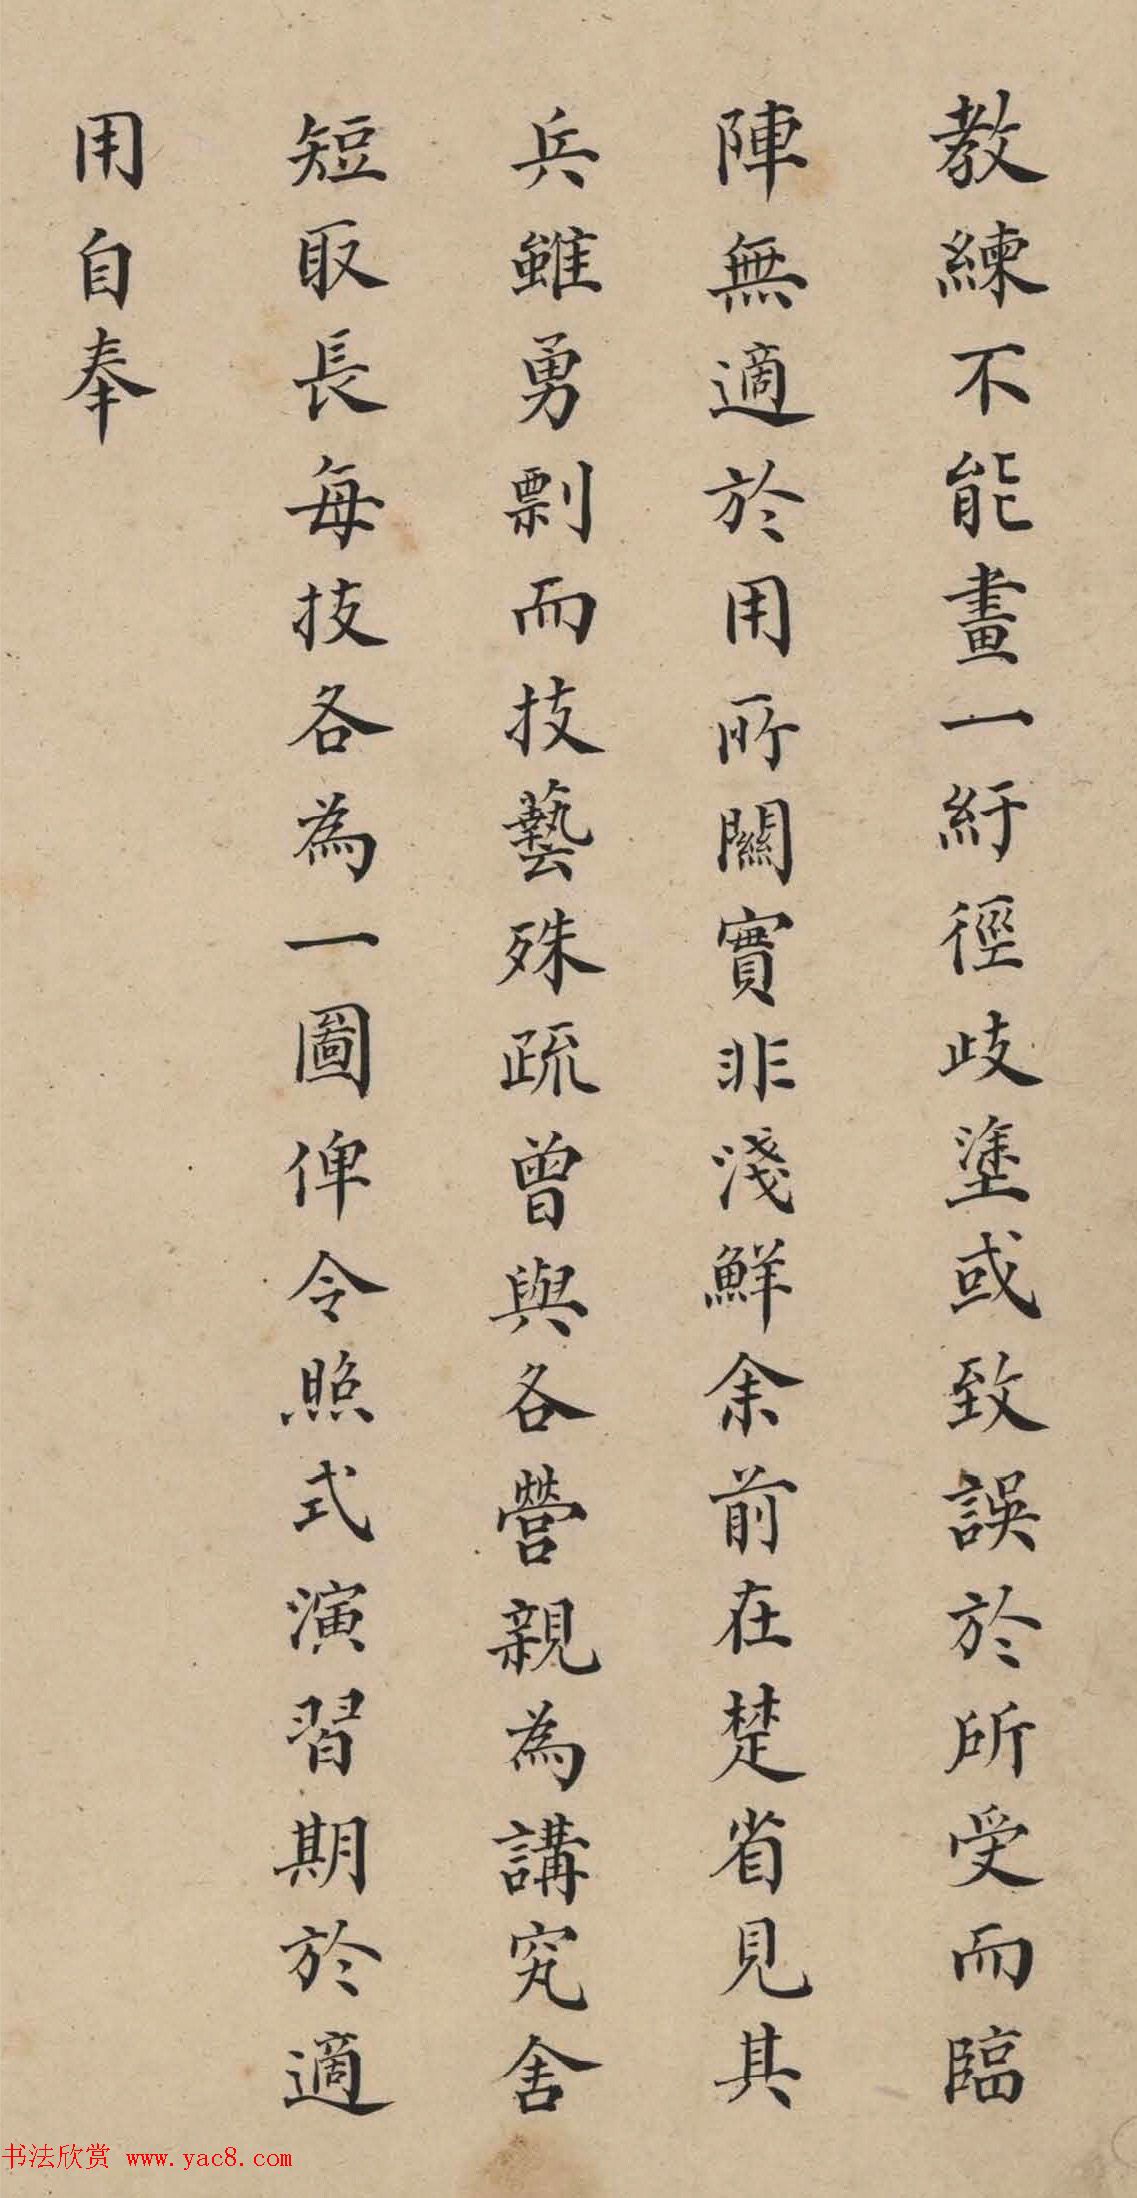 教練不能畫一紆徑歧塗或致誤於所受而臨
陣無適於用所關實非淺鮮余前在楚省見其
兵雖勇剽而技藝殊疏曾與各營親為講究舍
短取長每技各為一圖俾令照式演習期於適
用自奉
书法欣赏 www.yac8.com